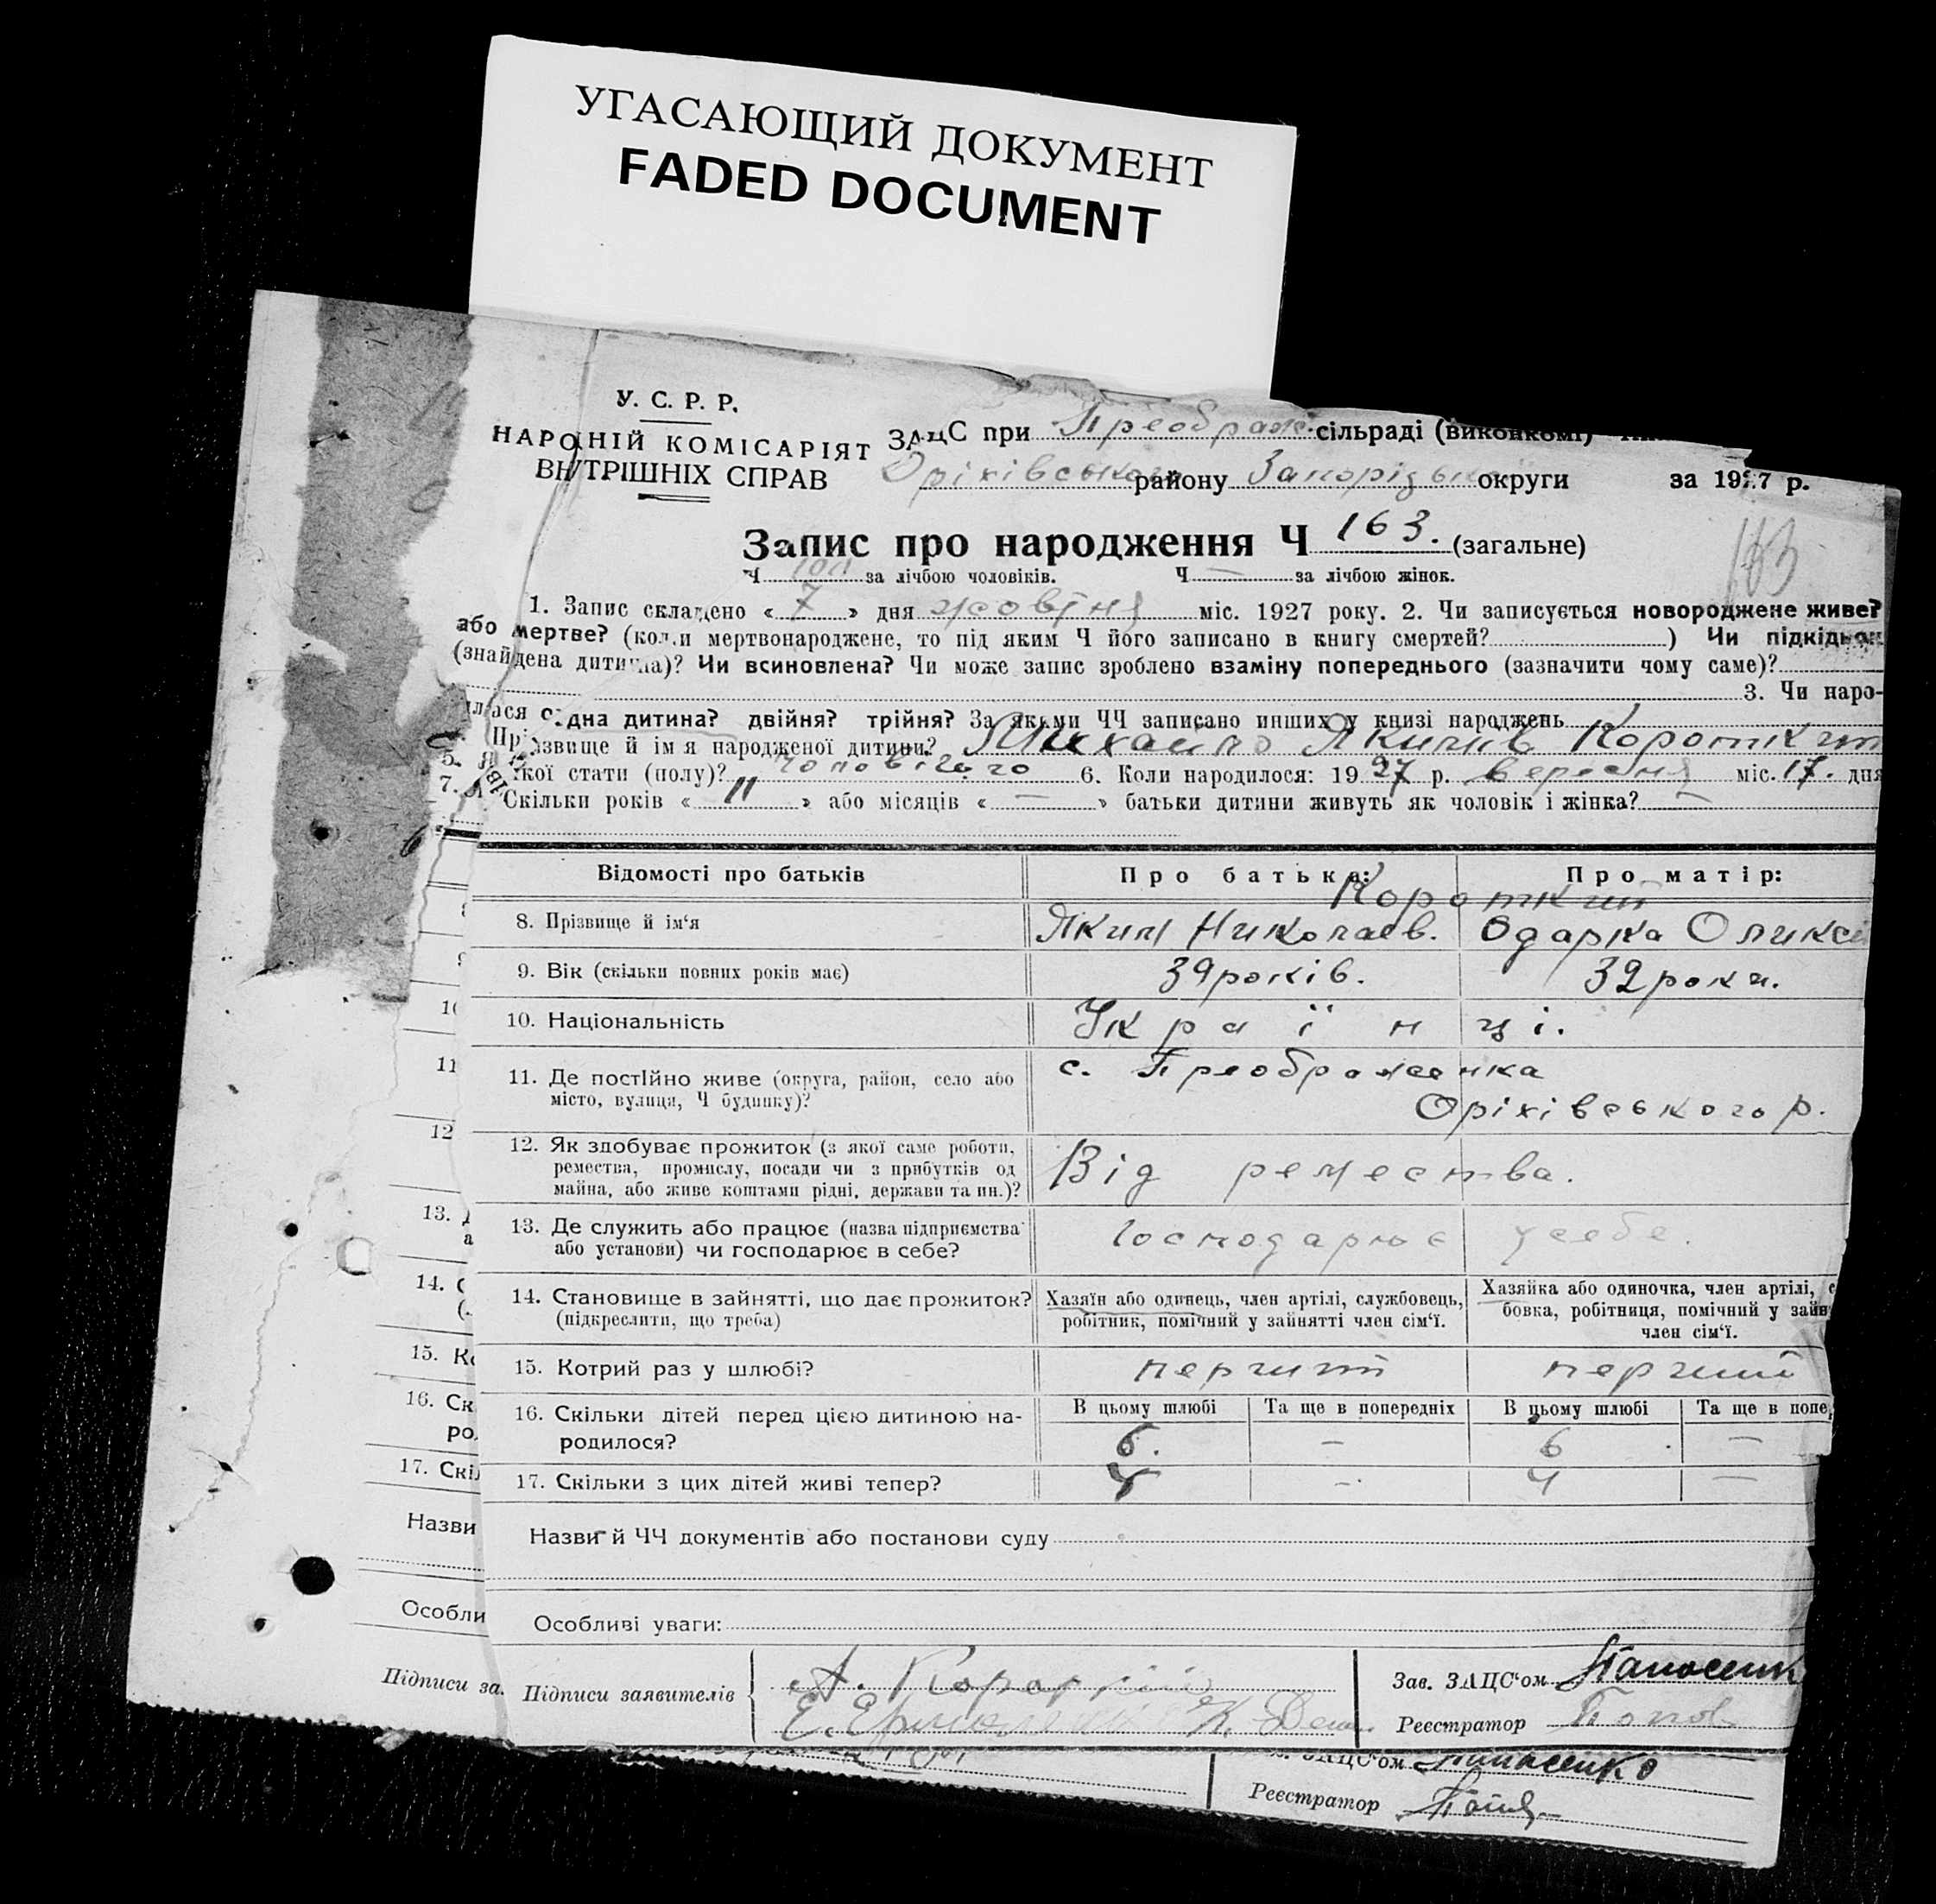 УГАСАЮЩИЙ ДОКУМЕНТ
FADED DOCUMENT
У. С. Р. Р.
НАРОДНІЙ КОМІСАРІЯТ
ВНУТРІШНІХ СПРАВ
ЗАЦС при Преображ. сільраді (виконкомі)
Оріхівського району Запорізької округи за 1927 р.
Запис про народження Ч 163. (загальне)
163
Ч за лічбою чоловіків. Ч — за лічбою жінок.
1. Запис складено « 7 » дня жовтня міс. 1927 року. 2. Чи записується новороджене живе?
або мертве? (коли мертвонароджене, то під яким Ч його записано в книгу смертей? ) Чи підкідьок
(знайдена дитина)? Чи всиновлена? Чи може запис зроблено взаміну попереднього (зазначити чому саме)?
3. Чи наро-
лася одна дитина? двійня? трійня? За якими ЧЧ записано инших у книзі народжень
Прізвище й ім'я народженої дитини? Михайло Якимів Короткий
5. Якої стати (полу)? чоловічого 6. Коли народилося: 1927 р. вересня міс. 17. дня
7. Скільки років « 11 » або місяців « — » батьки дитини живуть як чоловік і жінка? —
Відомості про батьків Про батька: Про матір:
Короткий
8. Прізвище й ім'я Яким Николаєв. Одарка Оликсі
9. Вік (скільки повних років має) 39 років. 32 роки.
10. Національність Українці.
11. Де постійно живе (округа, район, село або с. Преображенка
місто, вулиця, Ч будинку)? Оріхівського р.
12. Як здобуває прожиток (з якої саме роботи,
ремества, промислу, посади чи з прибутків од Від ремества.
майна, або живе коштами рідні, держави та ин.)?
13. Де служить або працює (назва підприємства Господарює усебе.
або установи) чи господарює в себе?
14. Становище в зайнятті, що дає прожиток? Хазяїн або одинець, член артілі, службовець, Хазяйка або одиночка, член артілі, с
(підкреслити, що треба) робітник, помічний у зайнятті член сім'ї. бовка, робітниця, помічний у зайн
член сім'ї.
15. Котрий раз у шлюбі? перший перший
16. Скільки дітей перед цією дитиною на- В цьому шлюбі Та ще в попередніх В цьому шлюбі Та ще в попе
родилося? 6. — 6 —
17. Скільки з цих дітей живі тепер? 4 — 4 —
Назви й ЧЧ документів або постанови суду
Особливі уваги:
Підписи заявителів А. Короткий Зав. ЗАЦС'ом Панасенк
Е. К. Реєстратор Попов
11
12
13.
14.
15.
16. Ск
17. Скі
Назви
Особли
Підписи за.
ЗАЦС'ом Панасенко
Реєстратор